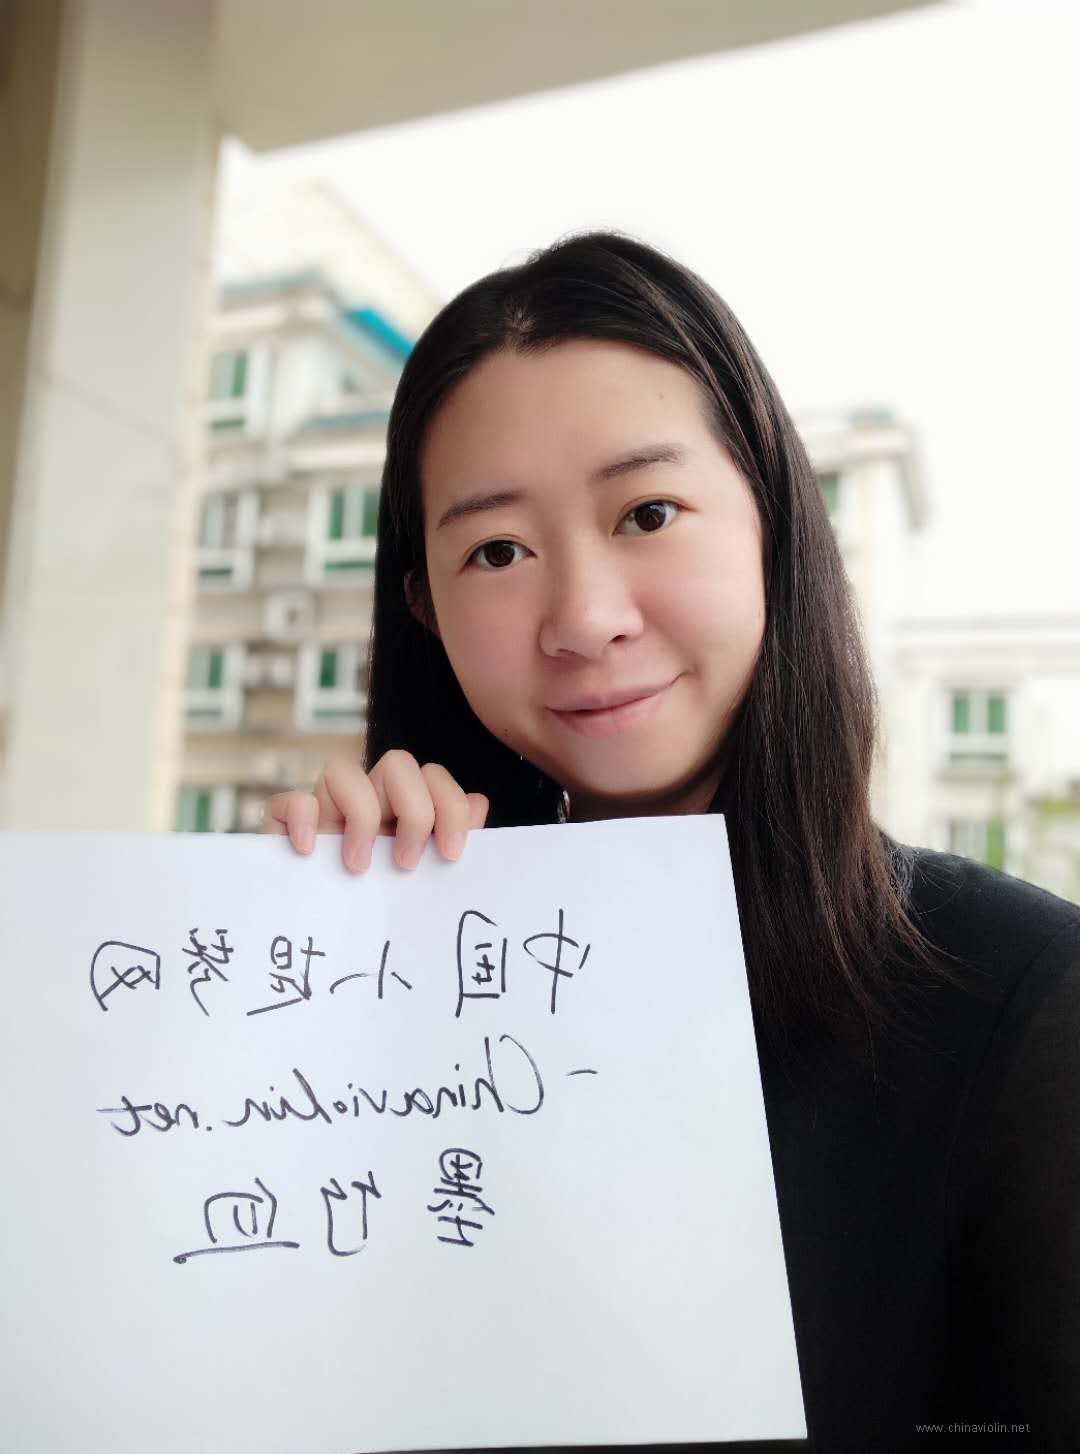 中国小提琴网
- Chinaviolin.net
www.chinaviolin.net